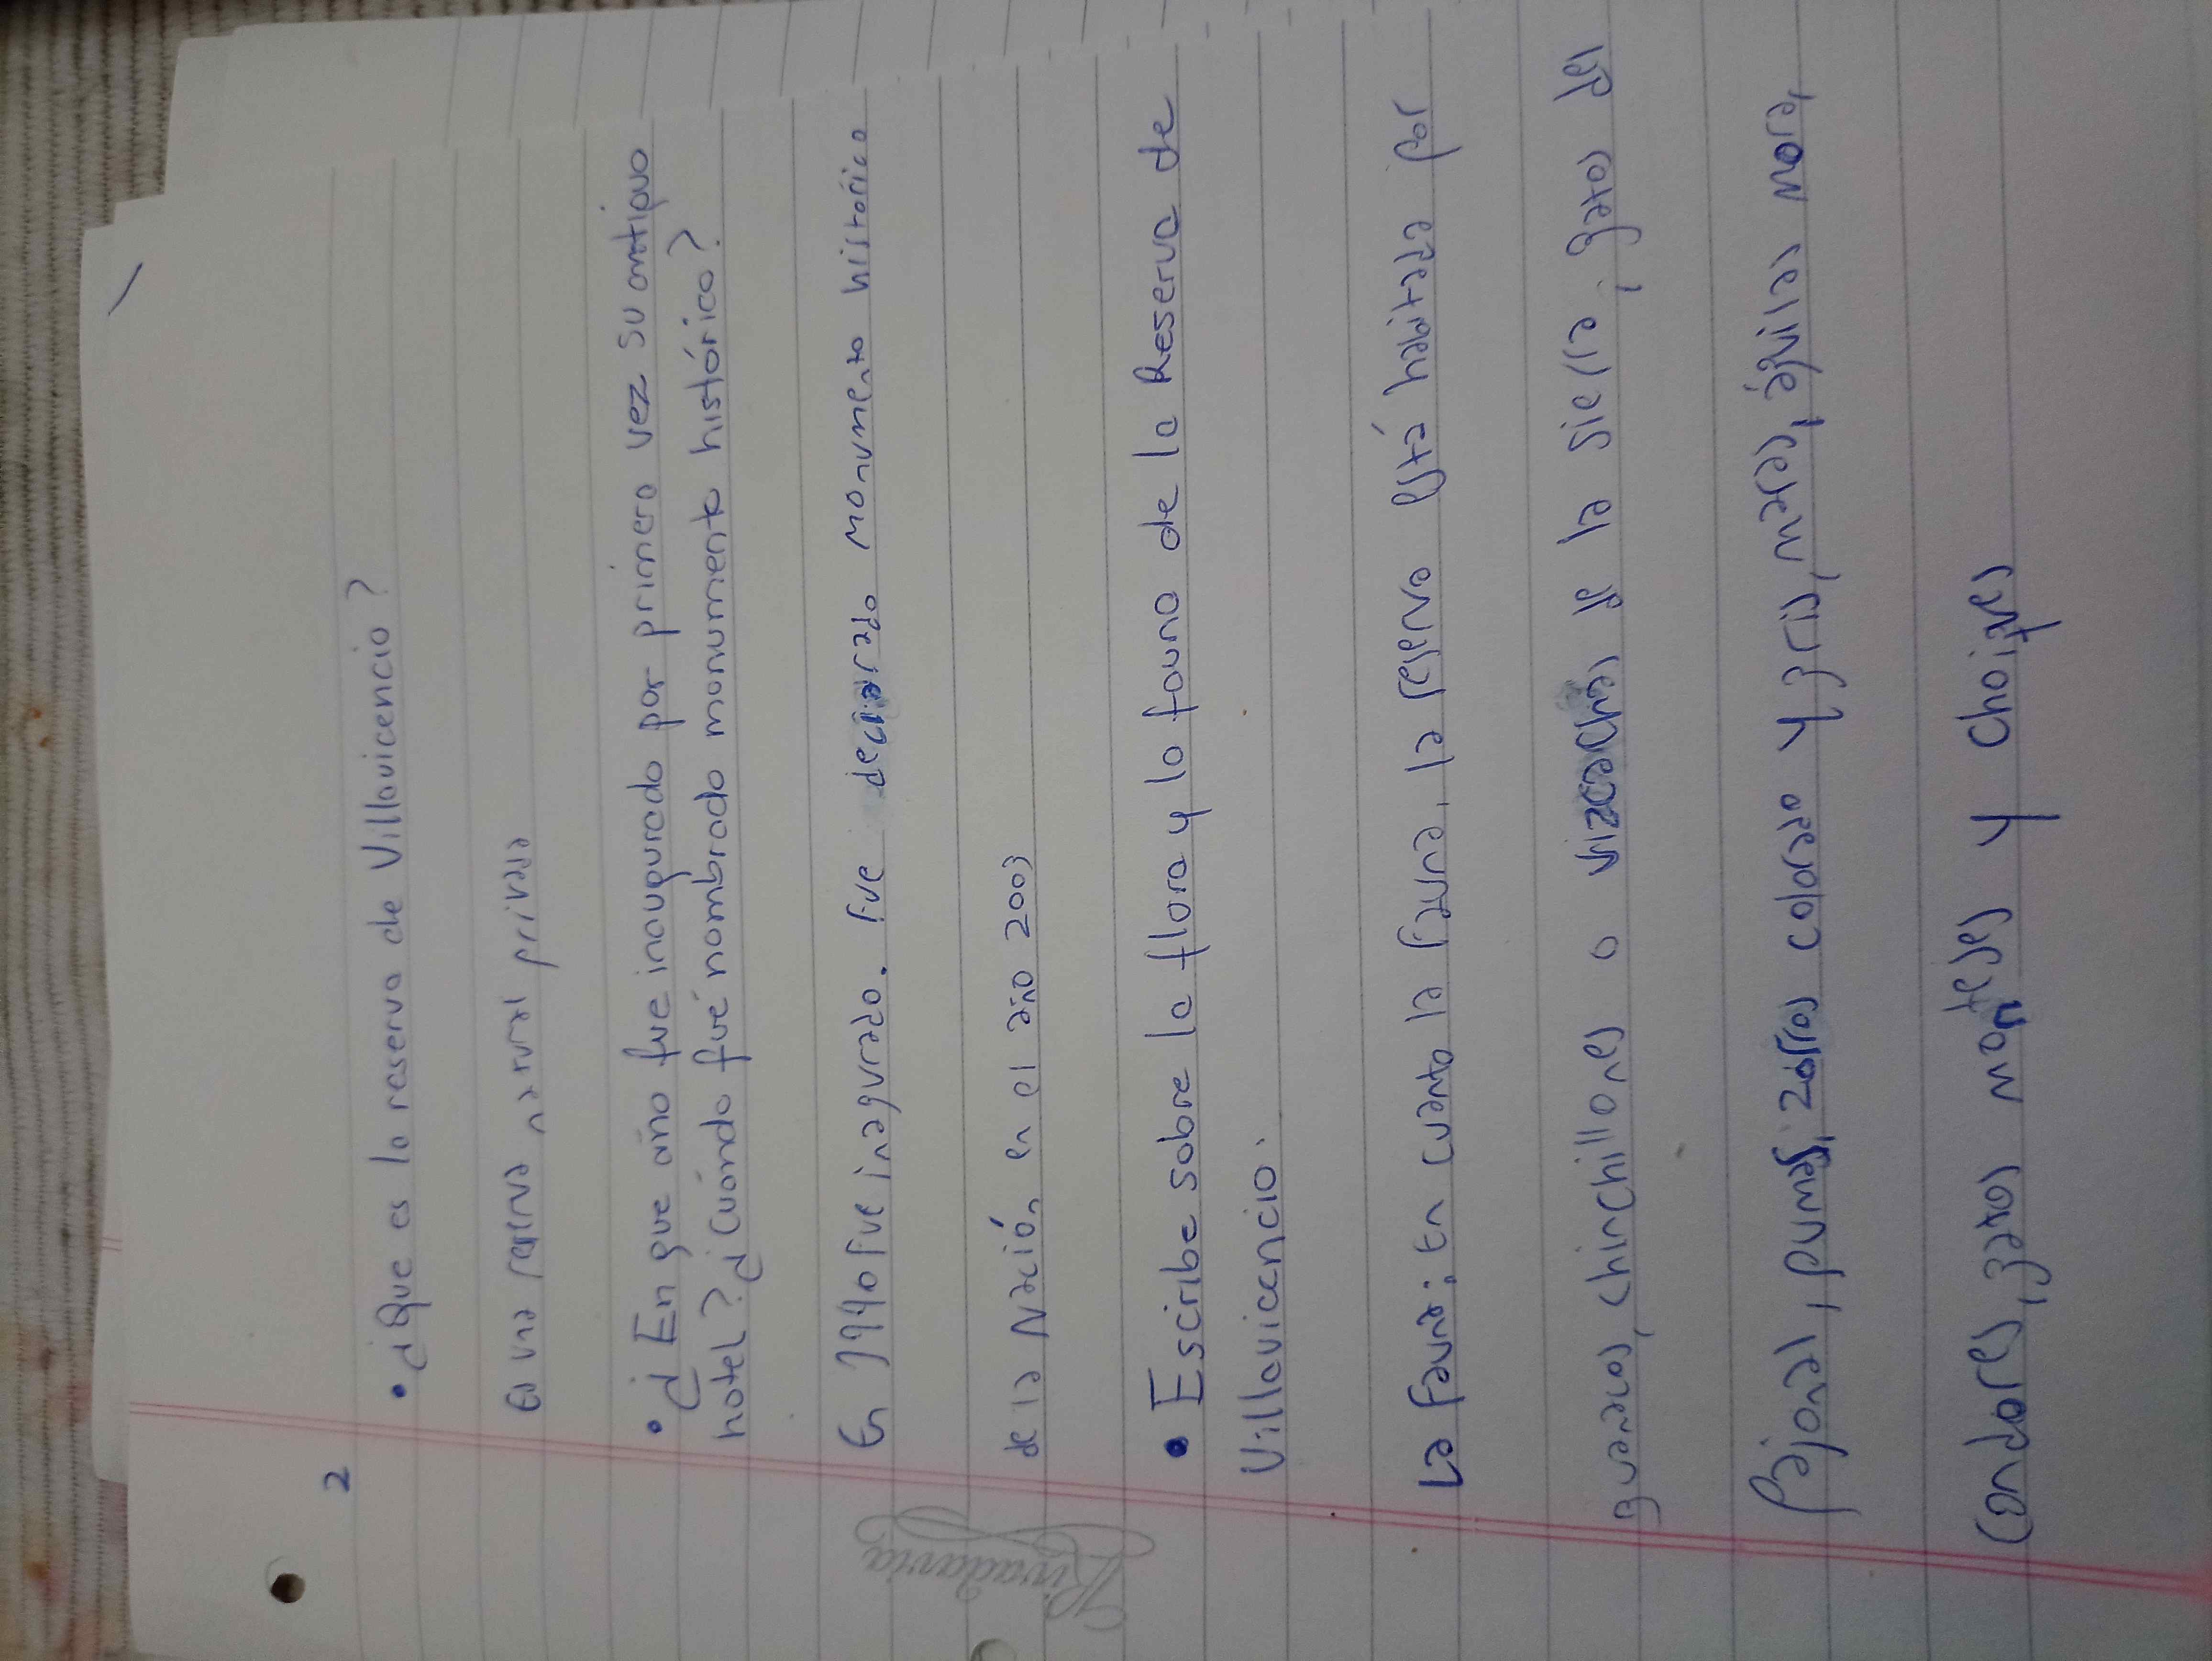 2
• ¿Que es la reserva de Villavicencio?
Es una reserva natural privada
• ¿En que año fue inaugurado por primera vez su antiguo
hotel? ¿Cuándo fué nombrado monumento histórico?
En 1940 fue inagurado. Fue declarado monumento histórico
de la Nación, en el año 2003
• Escribe sobre la flora y la fauna de la Reserva de
Villavicencio.
La fauna: En cuanto la fauna, la reserva está habitada por
guanacos, chinchillones o vizcachas de la sierra, gatos del
Pajonal, pumas, zorros colorado y gris, maras, águilas mora,
Condores, gatos monteses y choiques
Rivadavia